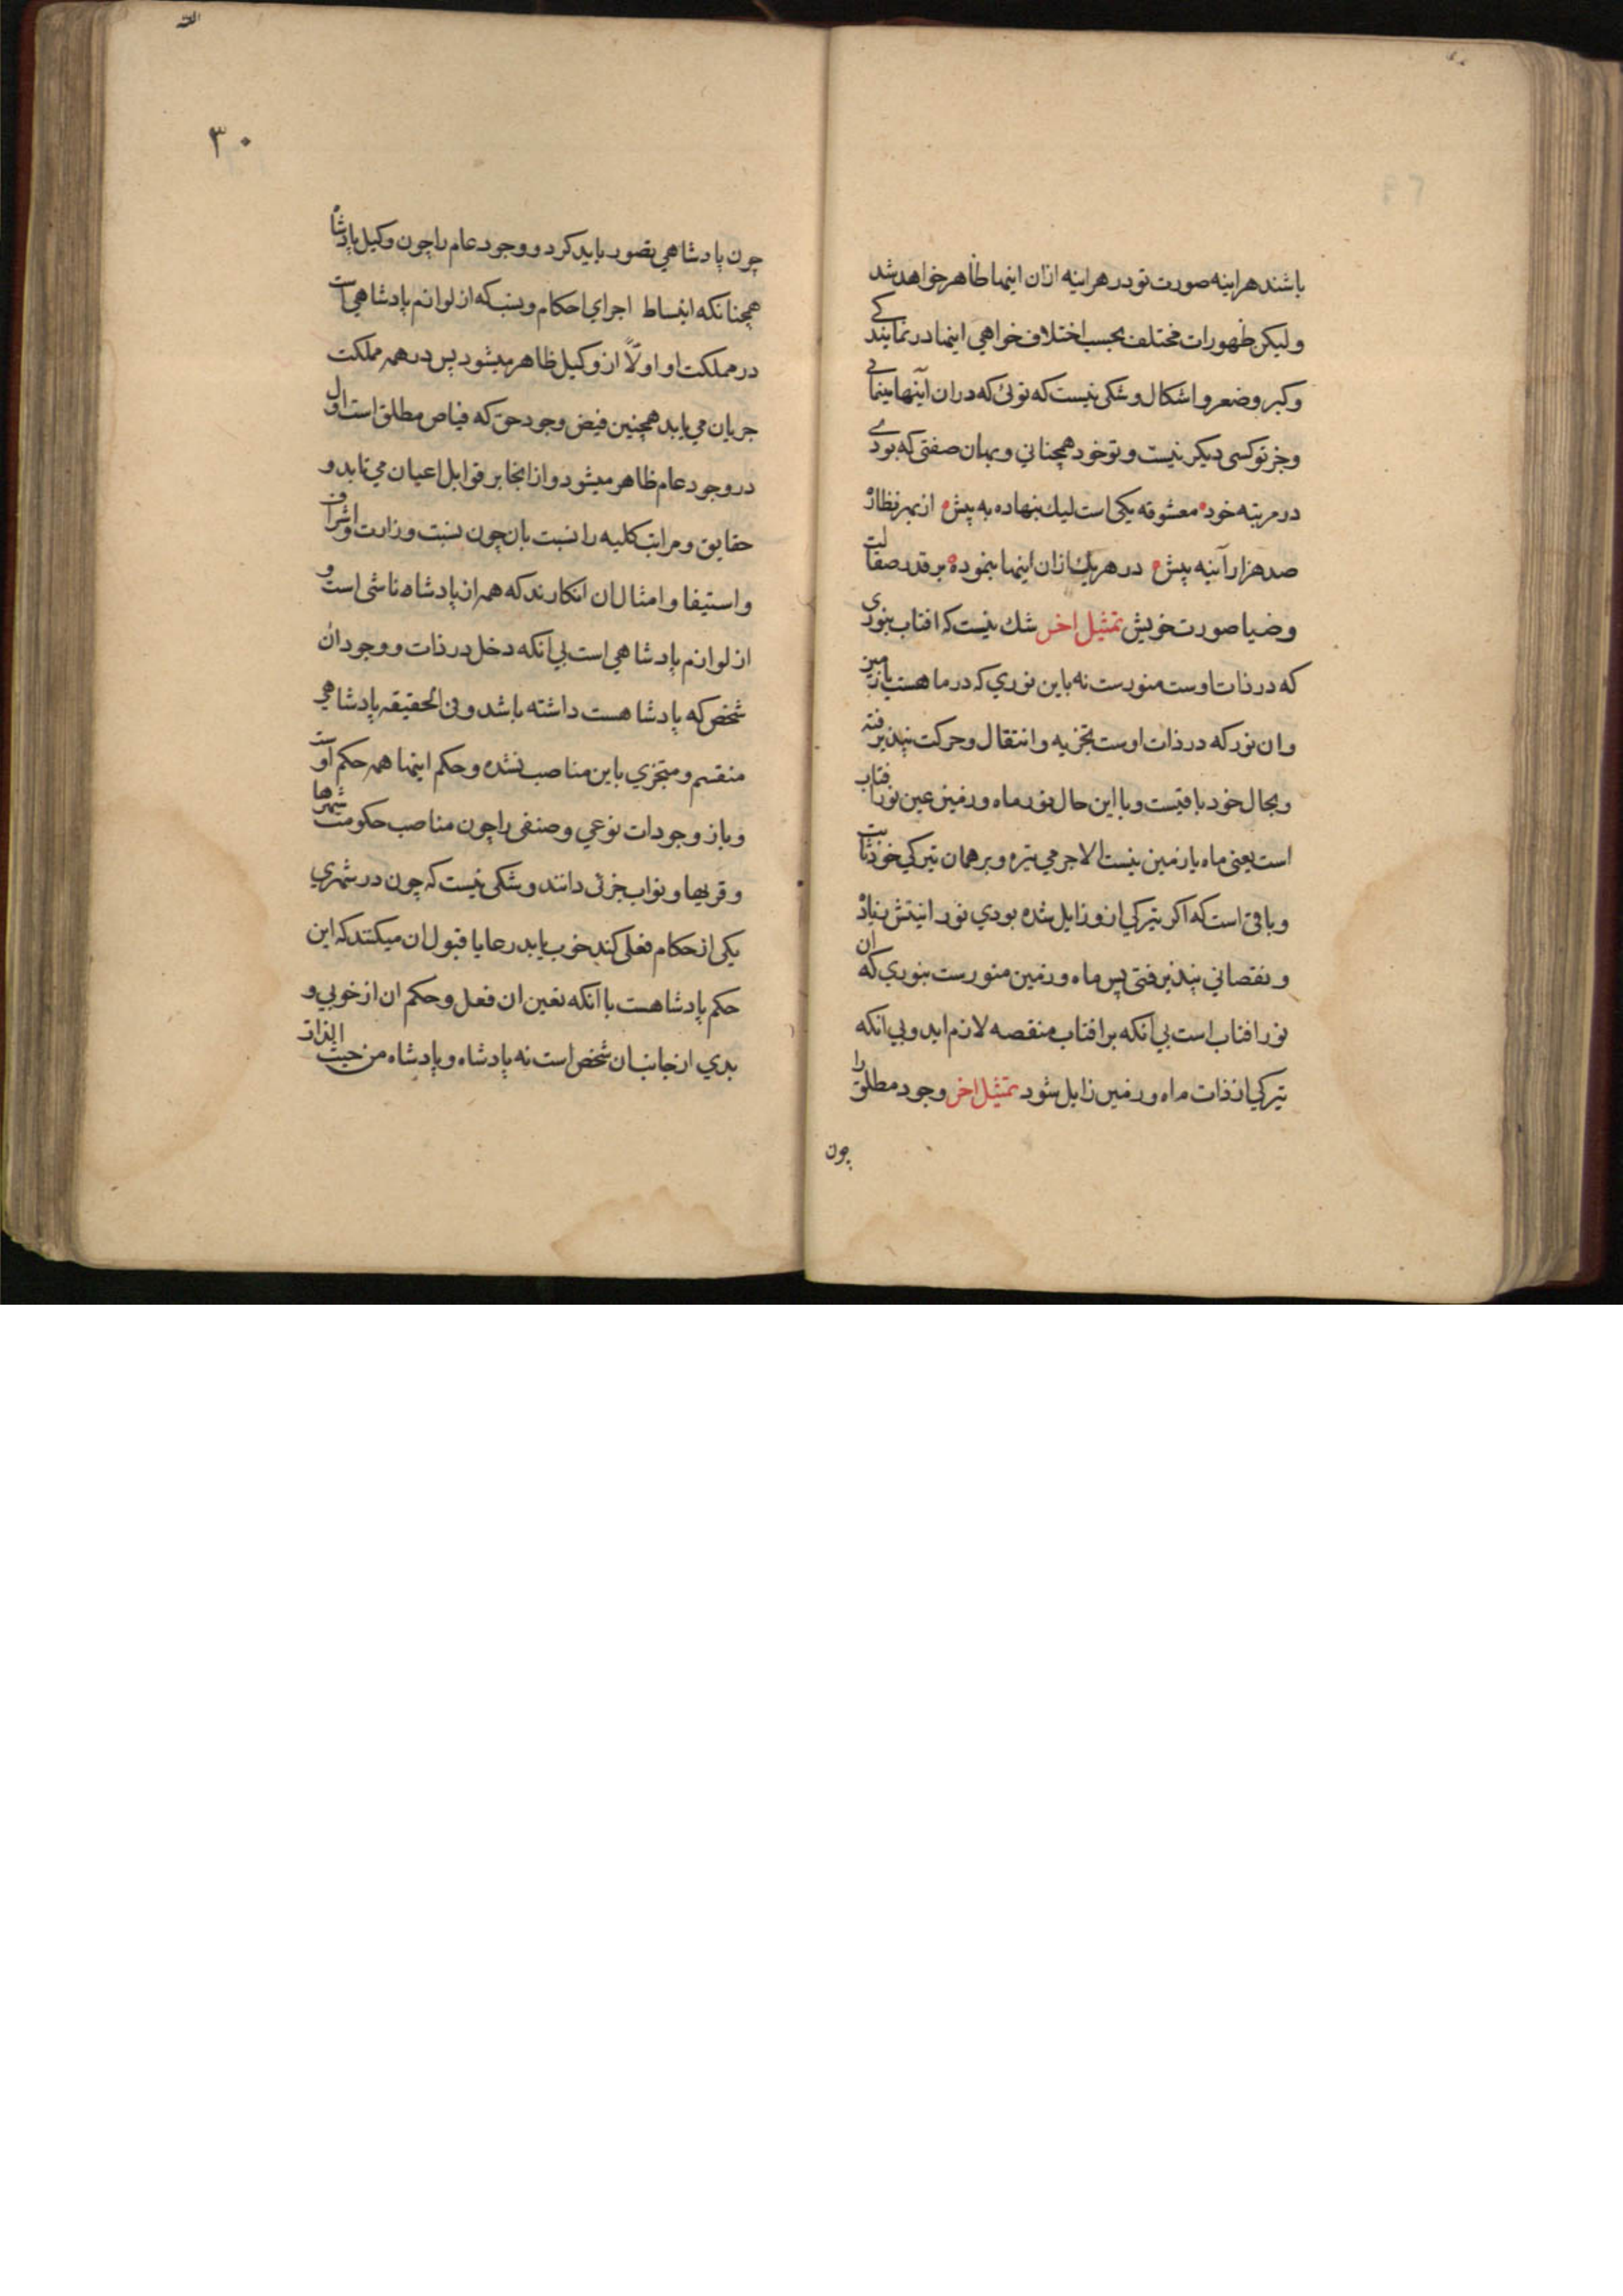 باشند هراینه صورت تو در هراینه ازان اینها ظاهر خواهد شد
ولیکن ظهورات مختلف بحسب اختلاف خواهی اینها در نمایندکی
وکبر وصغر واشکال وشکی نیست که توئی که دران آینها مینمائی
وجز تو کسی دیکر نیست وتو خود همچنانی وبهان صفتی که بودی
در مرتبه خود معشوقه یکی است لیك بنهاده به پیش از بهر نظاره
صد هزار آینه پیش در هریك ازان اینها بنموده بر قدر صقالت
وضیا صورت خویش تمثیل اخر شك نیست که افتاب بنوری
که در ذات اوست منورست نه باین نوری که در ما هست یا زمین
وان نور که در ذات اوست تجزیه وانتقال وحرکت نپذیرفته
وبحال خود باقیست وبا این حال نور ماه وزمین عین نور افتاب
است یعنی ماه یا زمین نیست الا جرمی تیره وبر همان تیرکی خود ثابت
وباقی است که اکر تیرکی ازو زایل شده بودی نور انیتش
ونقصانی پذیرفتی پس ماه وزمین منورست بنوری که ان
نور افتاب است بی انکه بر افتاب منقصه لازم اید وبی انکه
تیرکی از ذات ماه وزمین زایل شود تمثیل اخر وجود مطلق را
چون
۳۰
چون پادشاهی تصور باید کرد ووجود عام را چون وکیل پادشاه
همچنانکه انبساط اجرای احکام ونسب که از لوازم پادشاهی است
در مملکت او اولاً از وکیل ظاهر میشود پس در همه مملکت
جریان می یابد همچنین فیض وجود حق که فیاض مطلق است اول
در وجود عام ظاهر میشود واز انجا بر قوابل اعیان می تابد و
حقایق ومراتب کلیه را نسبت بان چون نسبت وزارت واشراف
واستیفا وامثال ان انکارند که همه از پادشاه ناشی است و
از لوازم پادشاهی است بی انکه دخل در ذات ووجود ان
شخص که پادشاهست داشته باشد وفی الحقیقه پادشاهی
منقسم ومتجزی باین مناصب نشده وحکم اینها همه حکم اوست
وباز وجودات نوعی وصنفی را چون مناصب حکومت شهرها
وقریها ونواب جزئی دانند وشکی نیست که چون در شهری
یکی از حکام فعلی کند خوب یا بد رعایا قبول ان میکنند که این
حکم پادشاهست با انکه تعین ان فعل وحکم ان از خوبی و
بدی از جانب ان شخص است نه پادشاه وپادشاه من حیث الذات